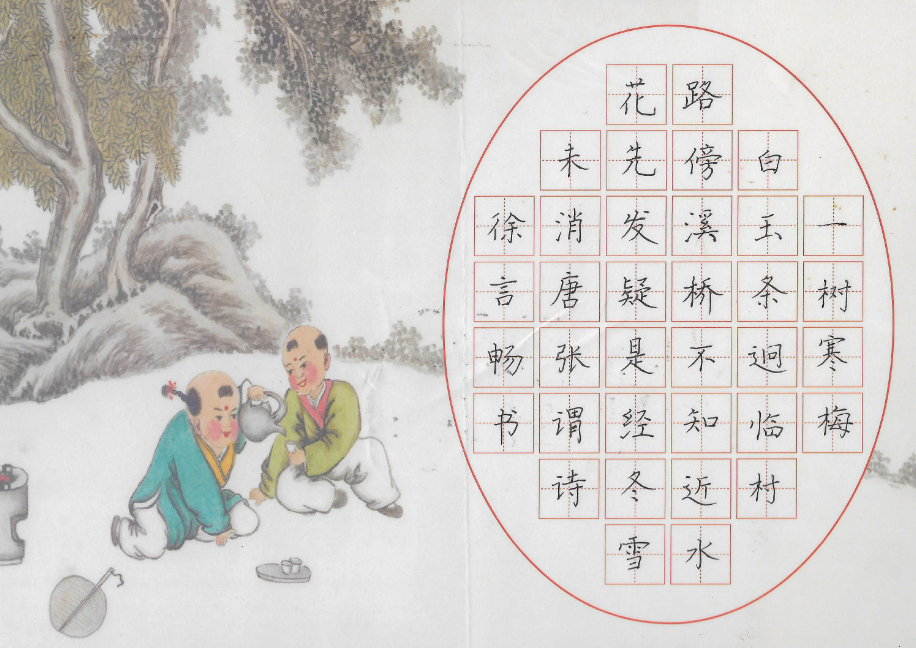 一树寒梅
白玉条迥临村
路傍溪桥不知近水
花先发疑是经冬雪
未消唐张谓诗
徐言畅书